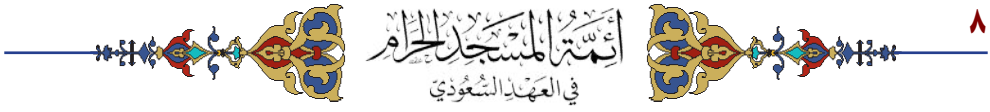 ٨
أَئِمَّةُ المَسْجِدِ الحَرَامِ
فِي العَهْدِ السُّعُودِيِّ